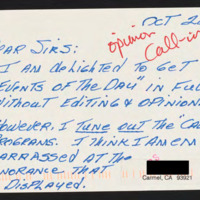 OCT 2
opinion
Call-in
EAR SIRS:
I AM DELIGHTED TO GET
EVENTS OF THE DAY" IN FULL
WITHOUT EDITING & OPINIONS
HOWEVER, I TUNE OUT THE "CA
PROGRAMS. I THINK I AM EM
ARRASSED AT THE
NORANCE THAT
DISPLAYED.
Carmel, CA 93921